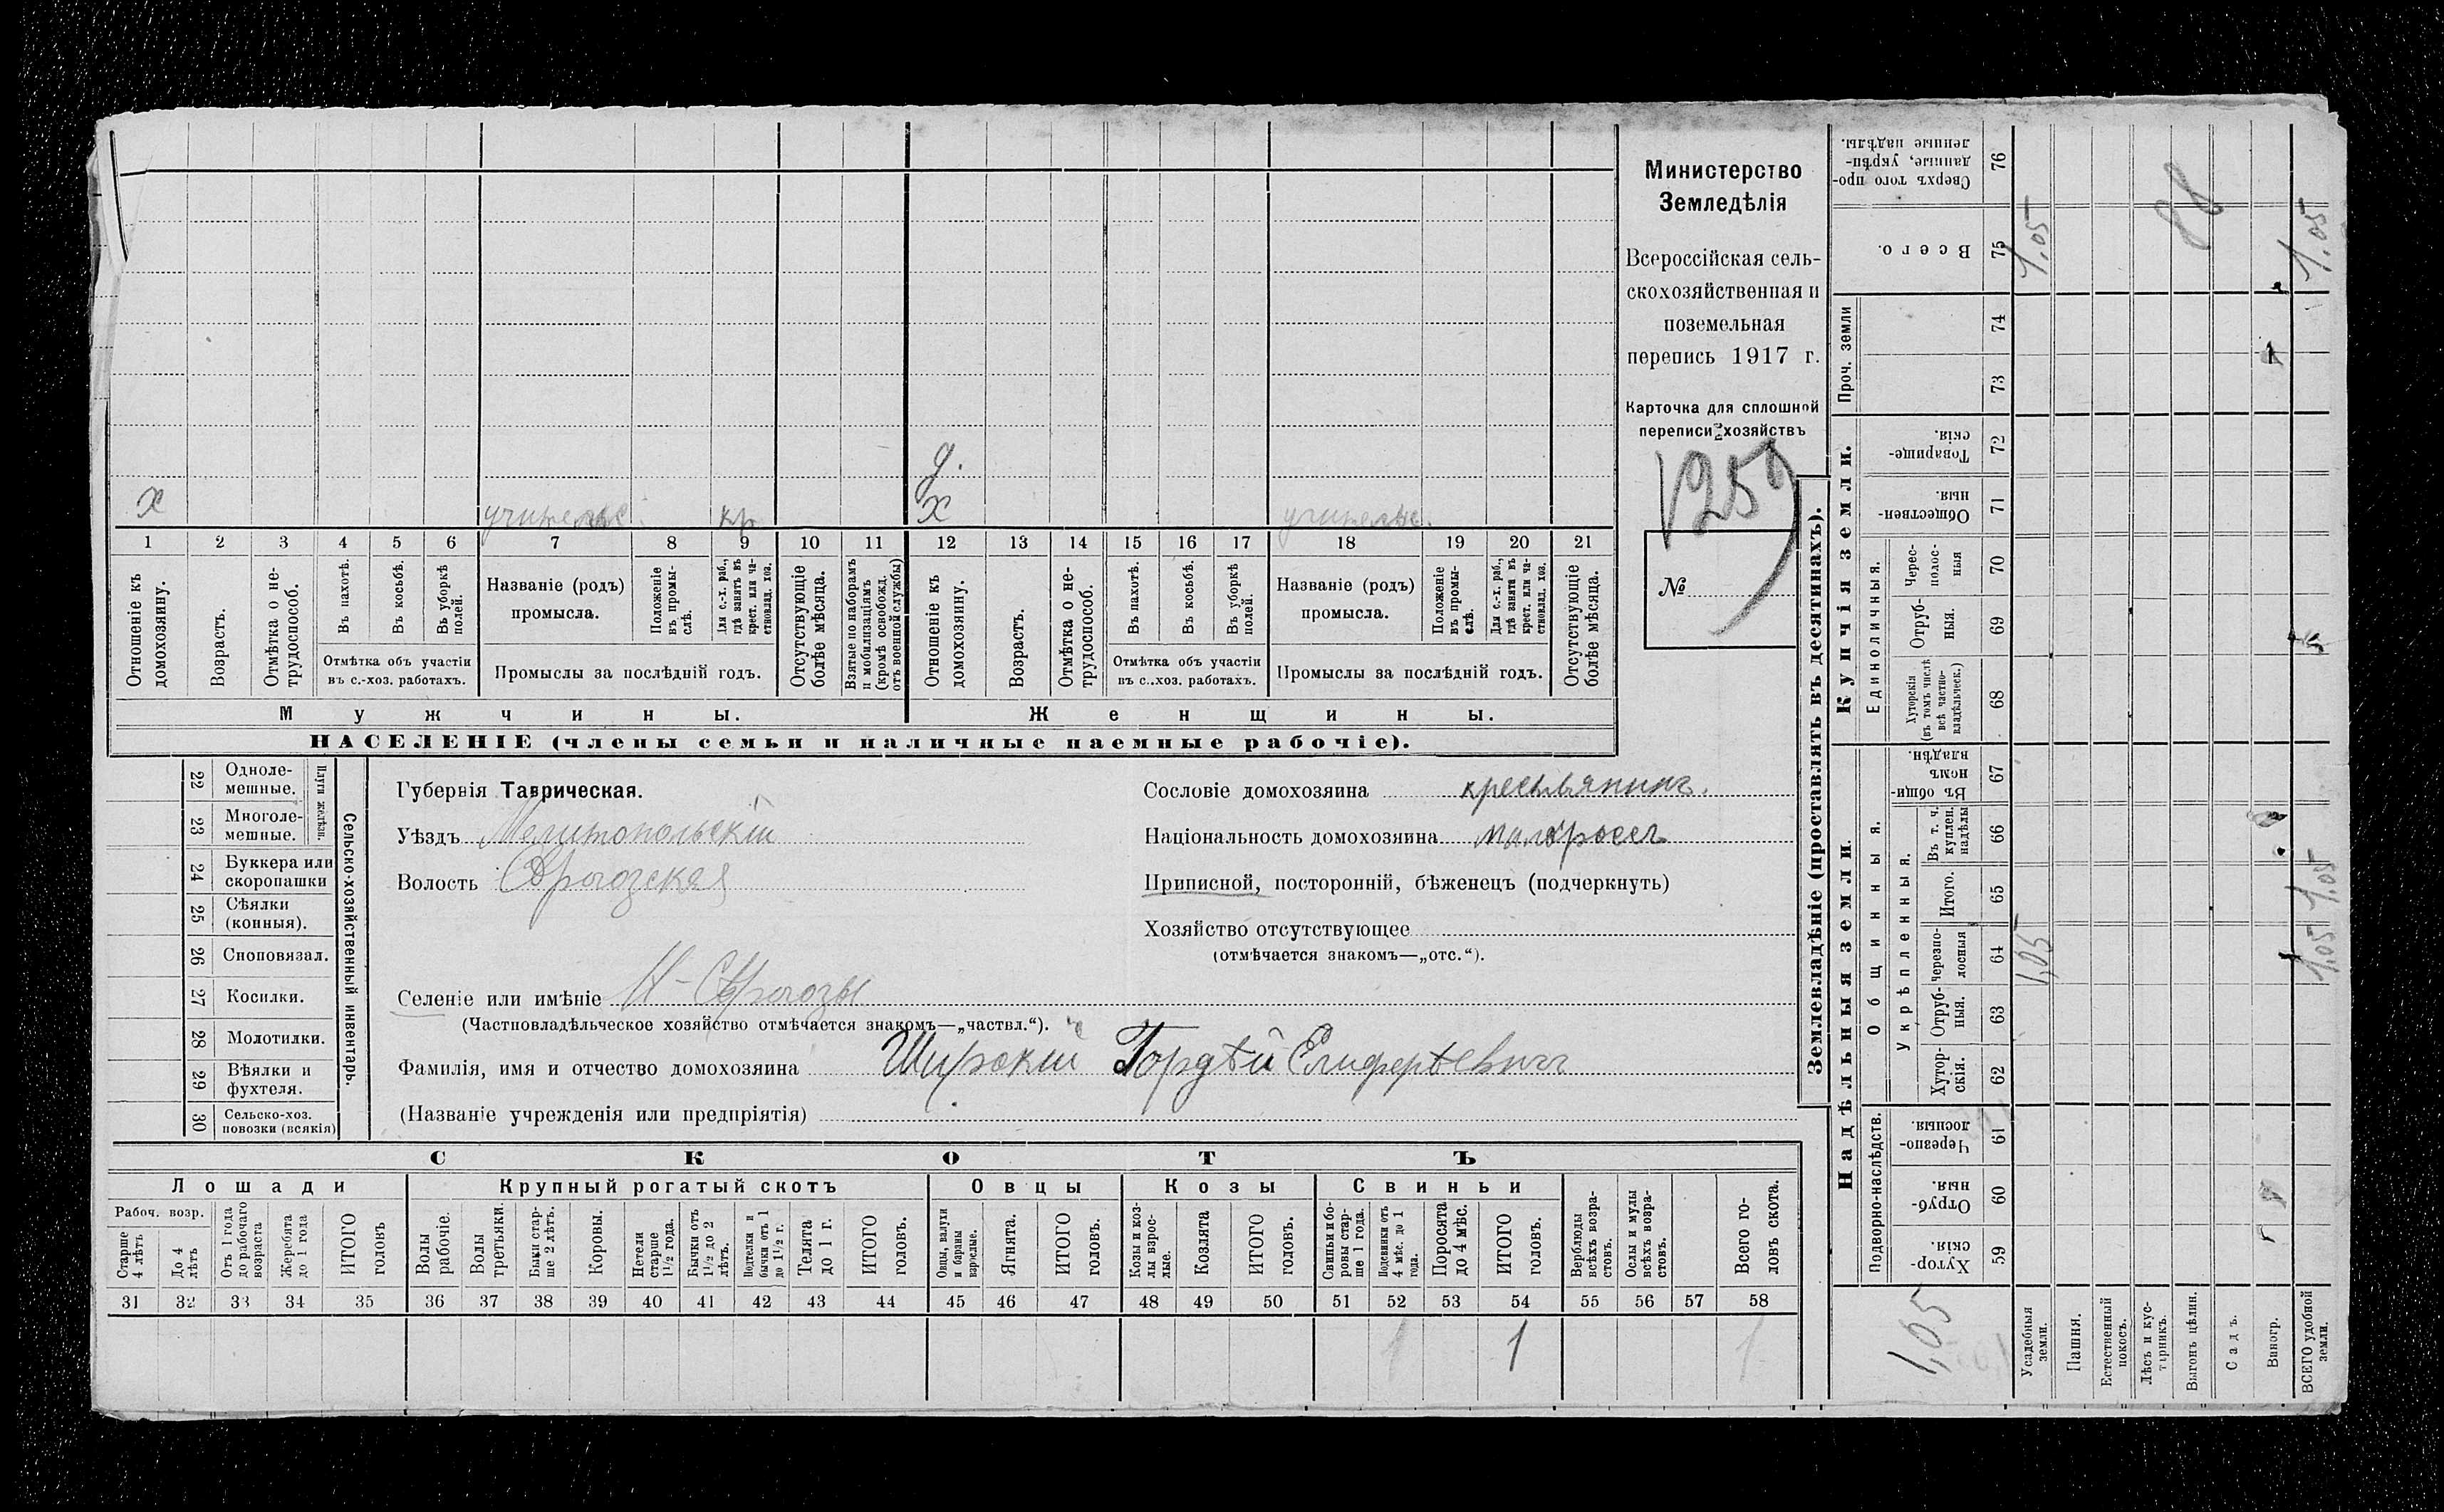 х
учитель
кр
д.
х
учитель.
1 2 3 4 5 6 7 8 9 10 11 12 13 14 15 16 17 18 19 20 21
Отношеніе къ домохозяину.
Возрастъ.
Отмѣтка о не-трудоспособ.
Въ пахотѣ.
Въ косьбѣ.
Въ уборкѣ полей.
Отмѣтка объ участіи
въ с.-хоз. работахъ.
Названіе (родъ)
промысла.
Положеніе въ промы-слѣ.
Для с.-х. раб., гдѣ занятъ въ крест. или ча-стновлад. хоз.
Промыслы за послѣдній годъ.
Отсутствующіе болѣе мѣсяца.
Взятые по наборамъ и мобилизаціямъ (кромѣ освобожд. отъ военной службы)
Отношеніе къ домохозяину.
Возрастъ.
Отмѣтка о не-трудоспособ.
Въ пахотѣ.
Въ косьбѣ.
Въ уборкѣ полей.
Отмѣтка объ участіи
въ с.-хоз. работахъ.
Названіе (родъ)
промысла.
Положеніе въ промы-слѣ.
Для с.-х. раб., гдѣ заняты въ крест. или ча-стновлад. хоз.
Промыслы за послѣдній годъ.
Отсутствующіе болѣе мѣсяца.
Мужчины.
Женщины.
НАСЕЛЕНІЕ (члены семьи и наличные наемные рабочіе).
Министерство
Земледѣлія
Всероссійская сель-
скохозяйственная и
поземельная
перепись 1917 г.
Карточка для сплошной
переписи хозяйствъ
№
22 Одноле-мешные.
23 Многоле-мешные.
Плуги желѣзн.
24 Буккера или скоропашки
25 Сѣялки (конныя).
26 Сноповязал.
27 Косилки.
28 Молотилки.
29 Вѣялки и фухтеля.
30 Сельско-хоз. повозки (всякія)
Сельско-хозяйственный инвентарь.
Губернія Таврическая.
Уѣздъ Мелитопольскій
Волость
Селеніе или имѣніе
(Частновладѣльческое хозяйство отмѣчается знакомъ—„частвл.“).
Фамилія, имя и отчество домохозяина Широкій Гордѣй Елиферьевичъ
(Названіе учрежденія или предпріятія)
Сословіе домохозяина крестьянинъ.
Національность домохозяина малороссъ
Приписной, посторонній, бѣженецъ (подчеркнуть)
Хозяйство отсутствующее
(отмѣчается знакомъ—„отс.“).
СКОТЪ
Лошади
Крупный рогатый скотъ
Овцы
Козы
Свиньи
Рабоч. возр.
Старше 4 лѣтъ
До 4 лѣтъ
Отъ 1 года до рабочаго возраста
Жеребята до 1 года
ИТОГО головъ
Волы рабочіе.
Волы третьяки.
Быки стар-ше 2 лѣтъ.
Коровы.
Нетели старше 1½ года.
Бычки отъ 1½ до 2 лѣтъ.
Подтелки и бычки отъ 1 до 1½ г.
Телята до 1 г.
ИТОГО головъ.
Овцы, валухи и бараны взрослые.
Ягнята.
ИТОГО головъ.
Козы и коз-лы взрос-лые.
Козлята
ИТОГО головъ.
Свиньи и бо-ровы стар-ше 1 года.
Подсвинки отъ 4 мѣс. до 1 года.
Поросята до 4 мѣс.
ИТОГО головъ.
Верблюды всѣхъ возра-стовъ.
Ослы и мулы всѣхъ возра-стовъ.
Всего го-ловъ скота.
31 32 33 34 35 36 37 38 39 40 41 42 43 44 45 46 47 48 49 50 51 52 53 54 55 56 57 58
1 1 1
Землевладѣніе (проставлять въ десятинахъ).
Надѣльныя земли.
Купчія земли.
Проч. земли
Подворно-наслѣдств.
Общинныя.
Укрѣпленныя.
Единоличныя.
Сверхъ того про-данные, укрѣп-ленные надѣлы. 76
Всего. 75
74
73
Товарище-скія. 72
Обществен-ныя. 71
Черес-полос-ныя 70
Отруб-ныя. 69
Хуторскія (въ томъ числѣ всѣ частно-владѣльческ.) 68
Въ общин-номъ владѣн. 67
Въ т. ч. куплен. надѣлы 66
Итого. 65
Черезпо-лосныя 64
Отруб-ныя. 63
Хутор-скія. 62
Черезпо-лосныя. 61
Отруб-ныя. 60
Хутор-скія. 59
Усадебныя земли.
Пашня.
Естественный покосъ.
Лѣсъ и кус-тарникъ.
Выгонъ цѣлин.
Садъ.
Виногр.
ВСЕГО удобной земли.
1,05
88
1,05
1,05
1,05
1,05
1,05